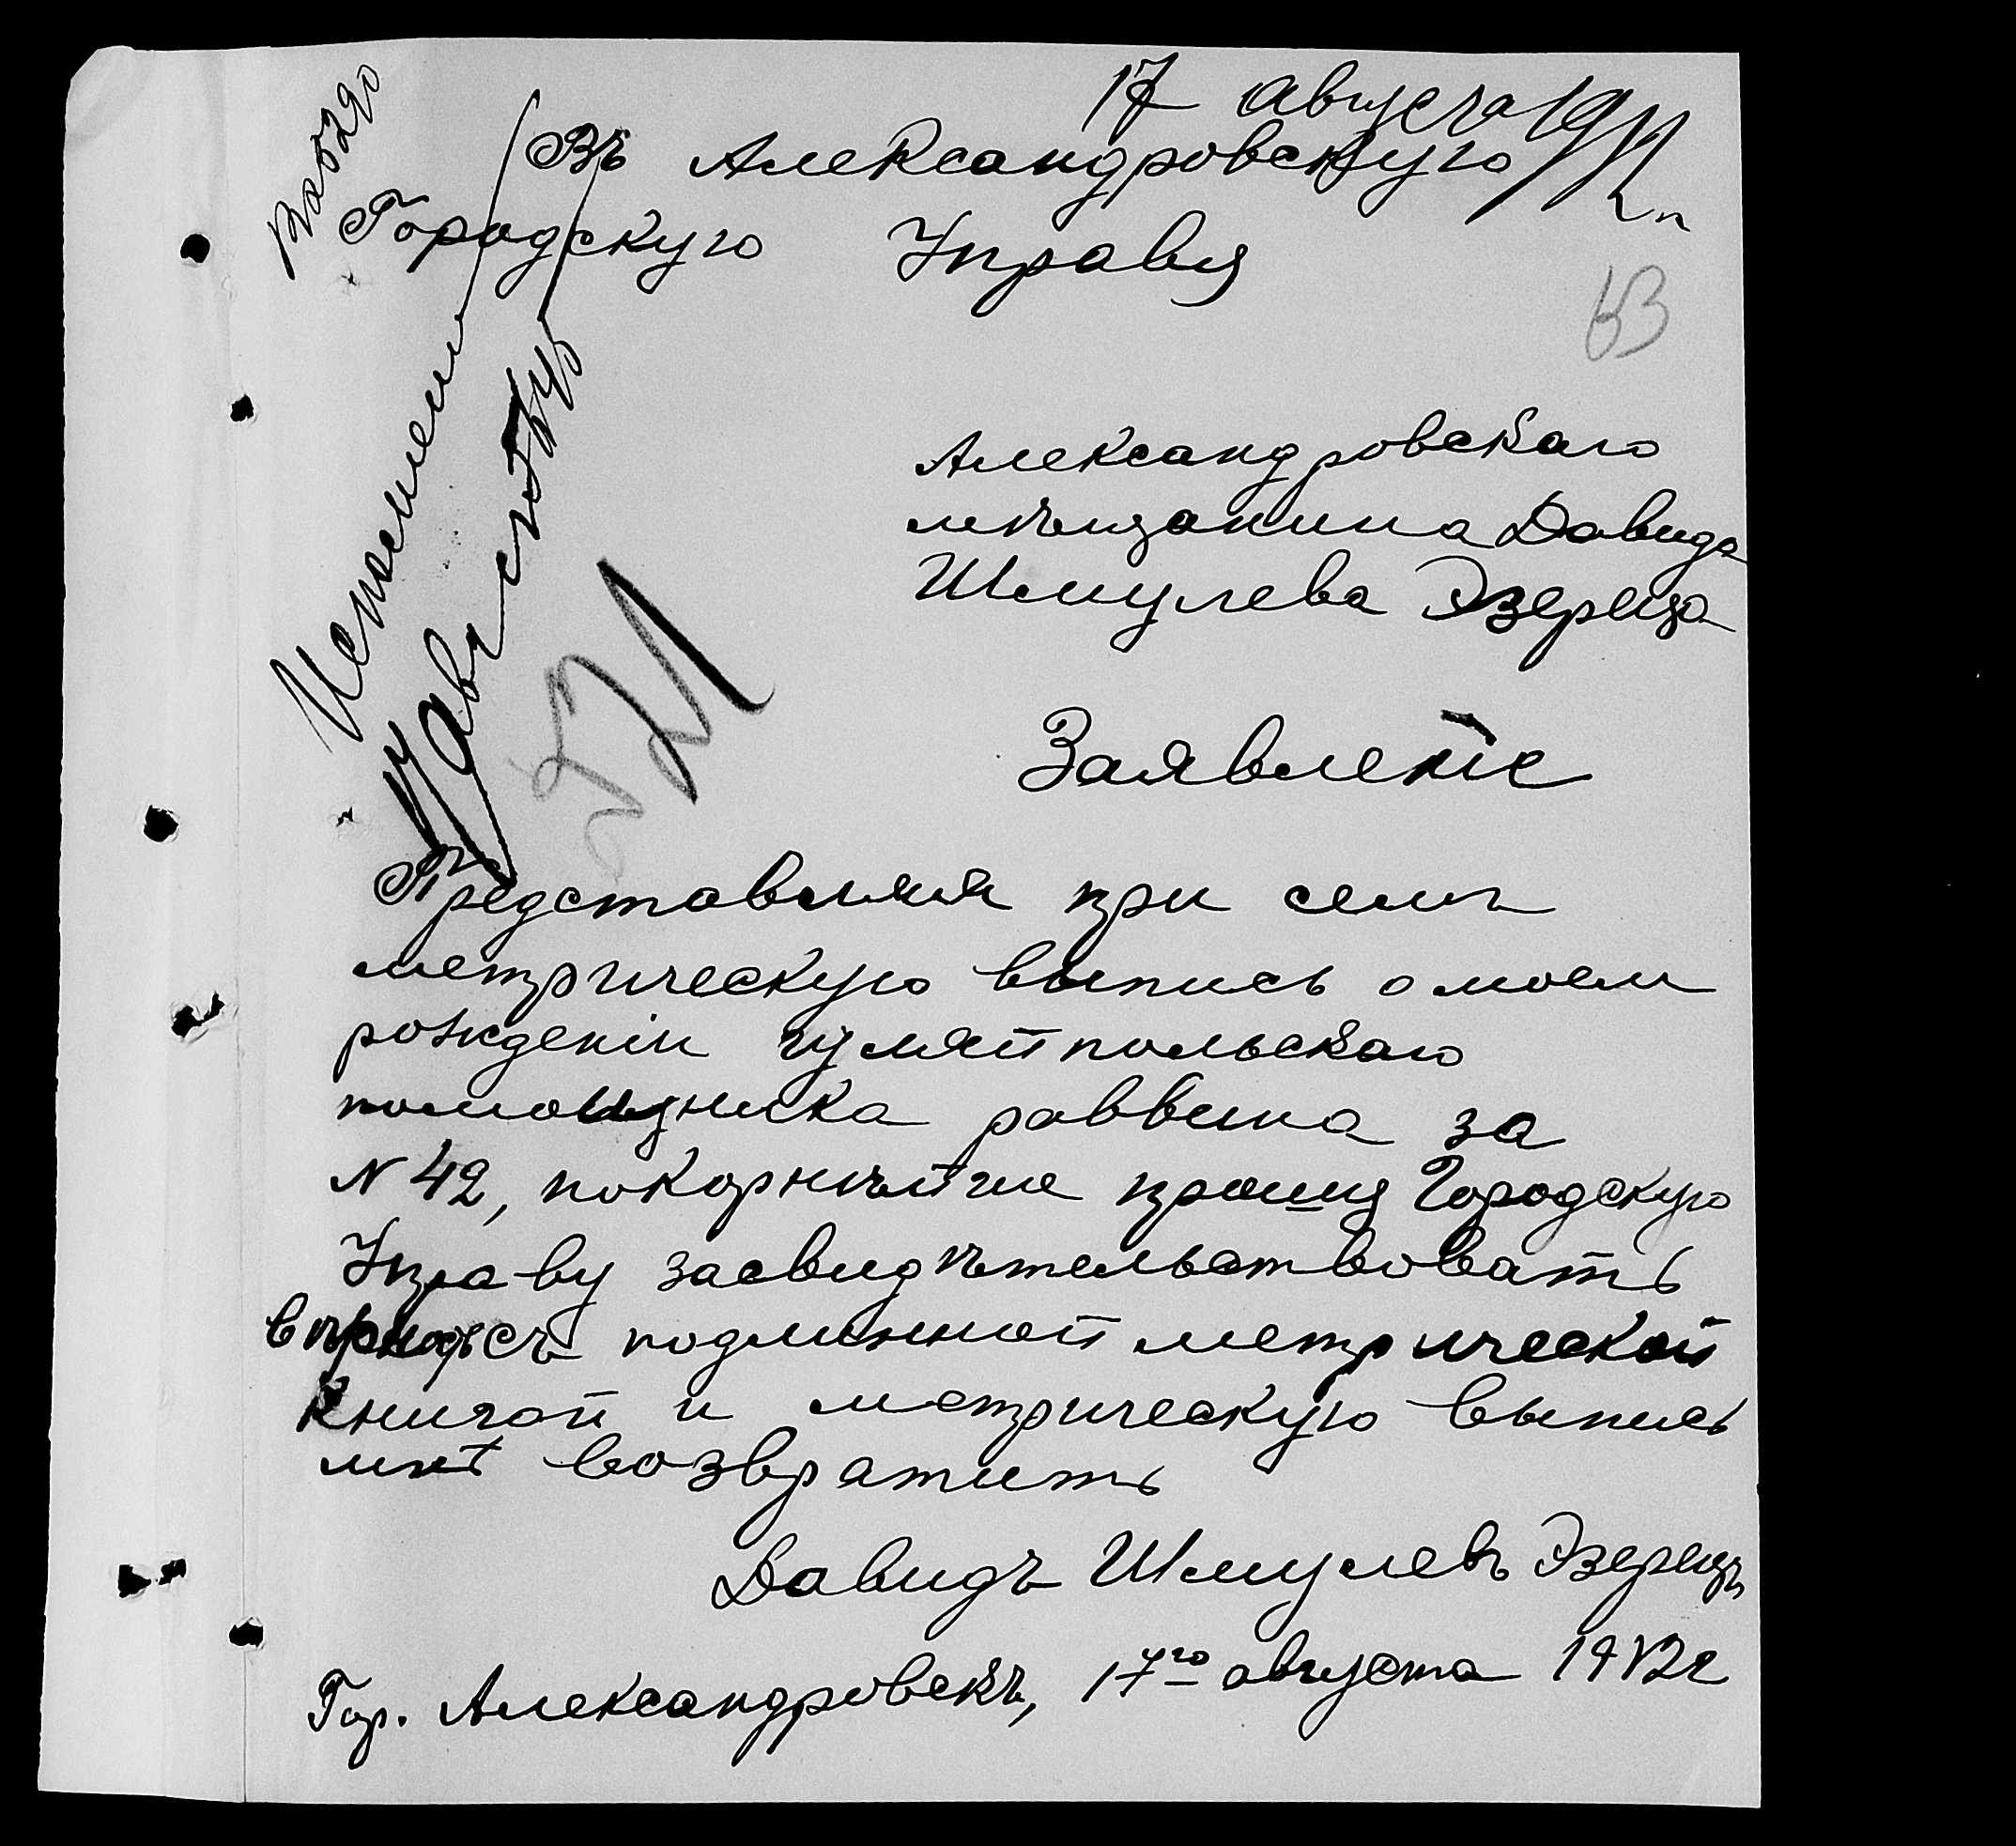 17 августа 1912 г.
Въ Александровскую
Городскую Управу
53
Александровскаго
мѣщанина Давида
Шмулева Эзереца
Заявленіе
Представляя при семъ
метрическую выпись о моем
рожденіи гуляйпольскаго
помощника раввина за
N 42, покорнѣйше прошу Городскую
Управу засвидѣтельствовать
вѣрность съ подлинной метрической
книгой и метрическую выпись
мнѣ возвратить
Давидъ Шмулевъ Эзерецъ
Гор. Александровскъ, 17го августа 1912 г